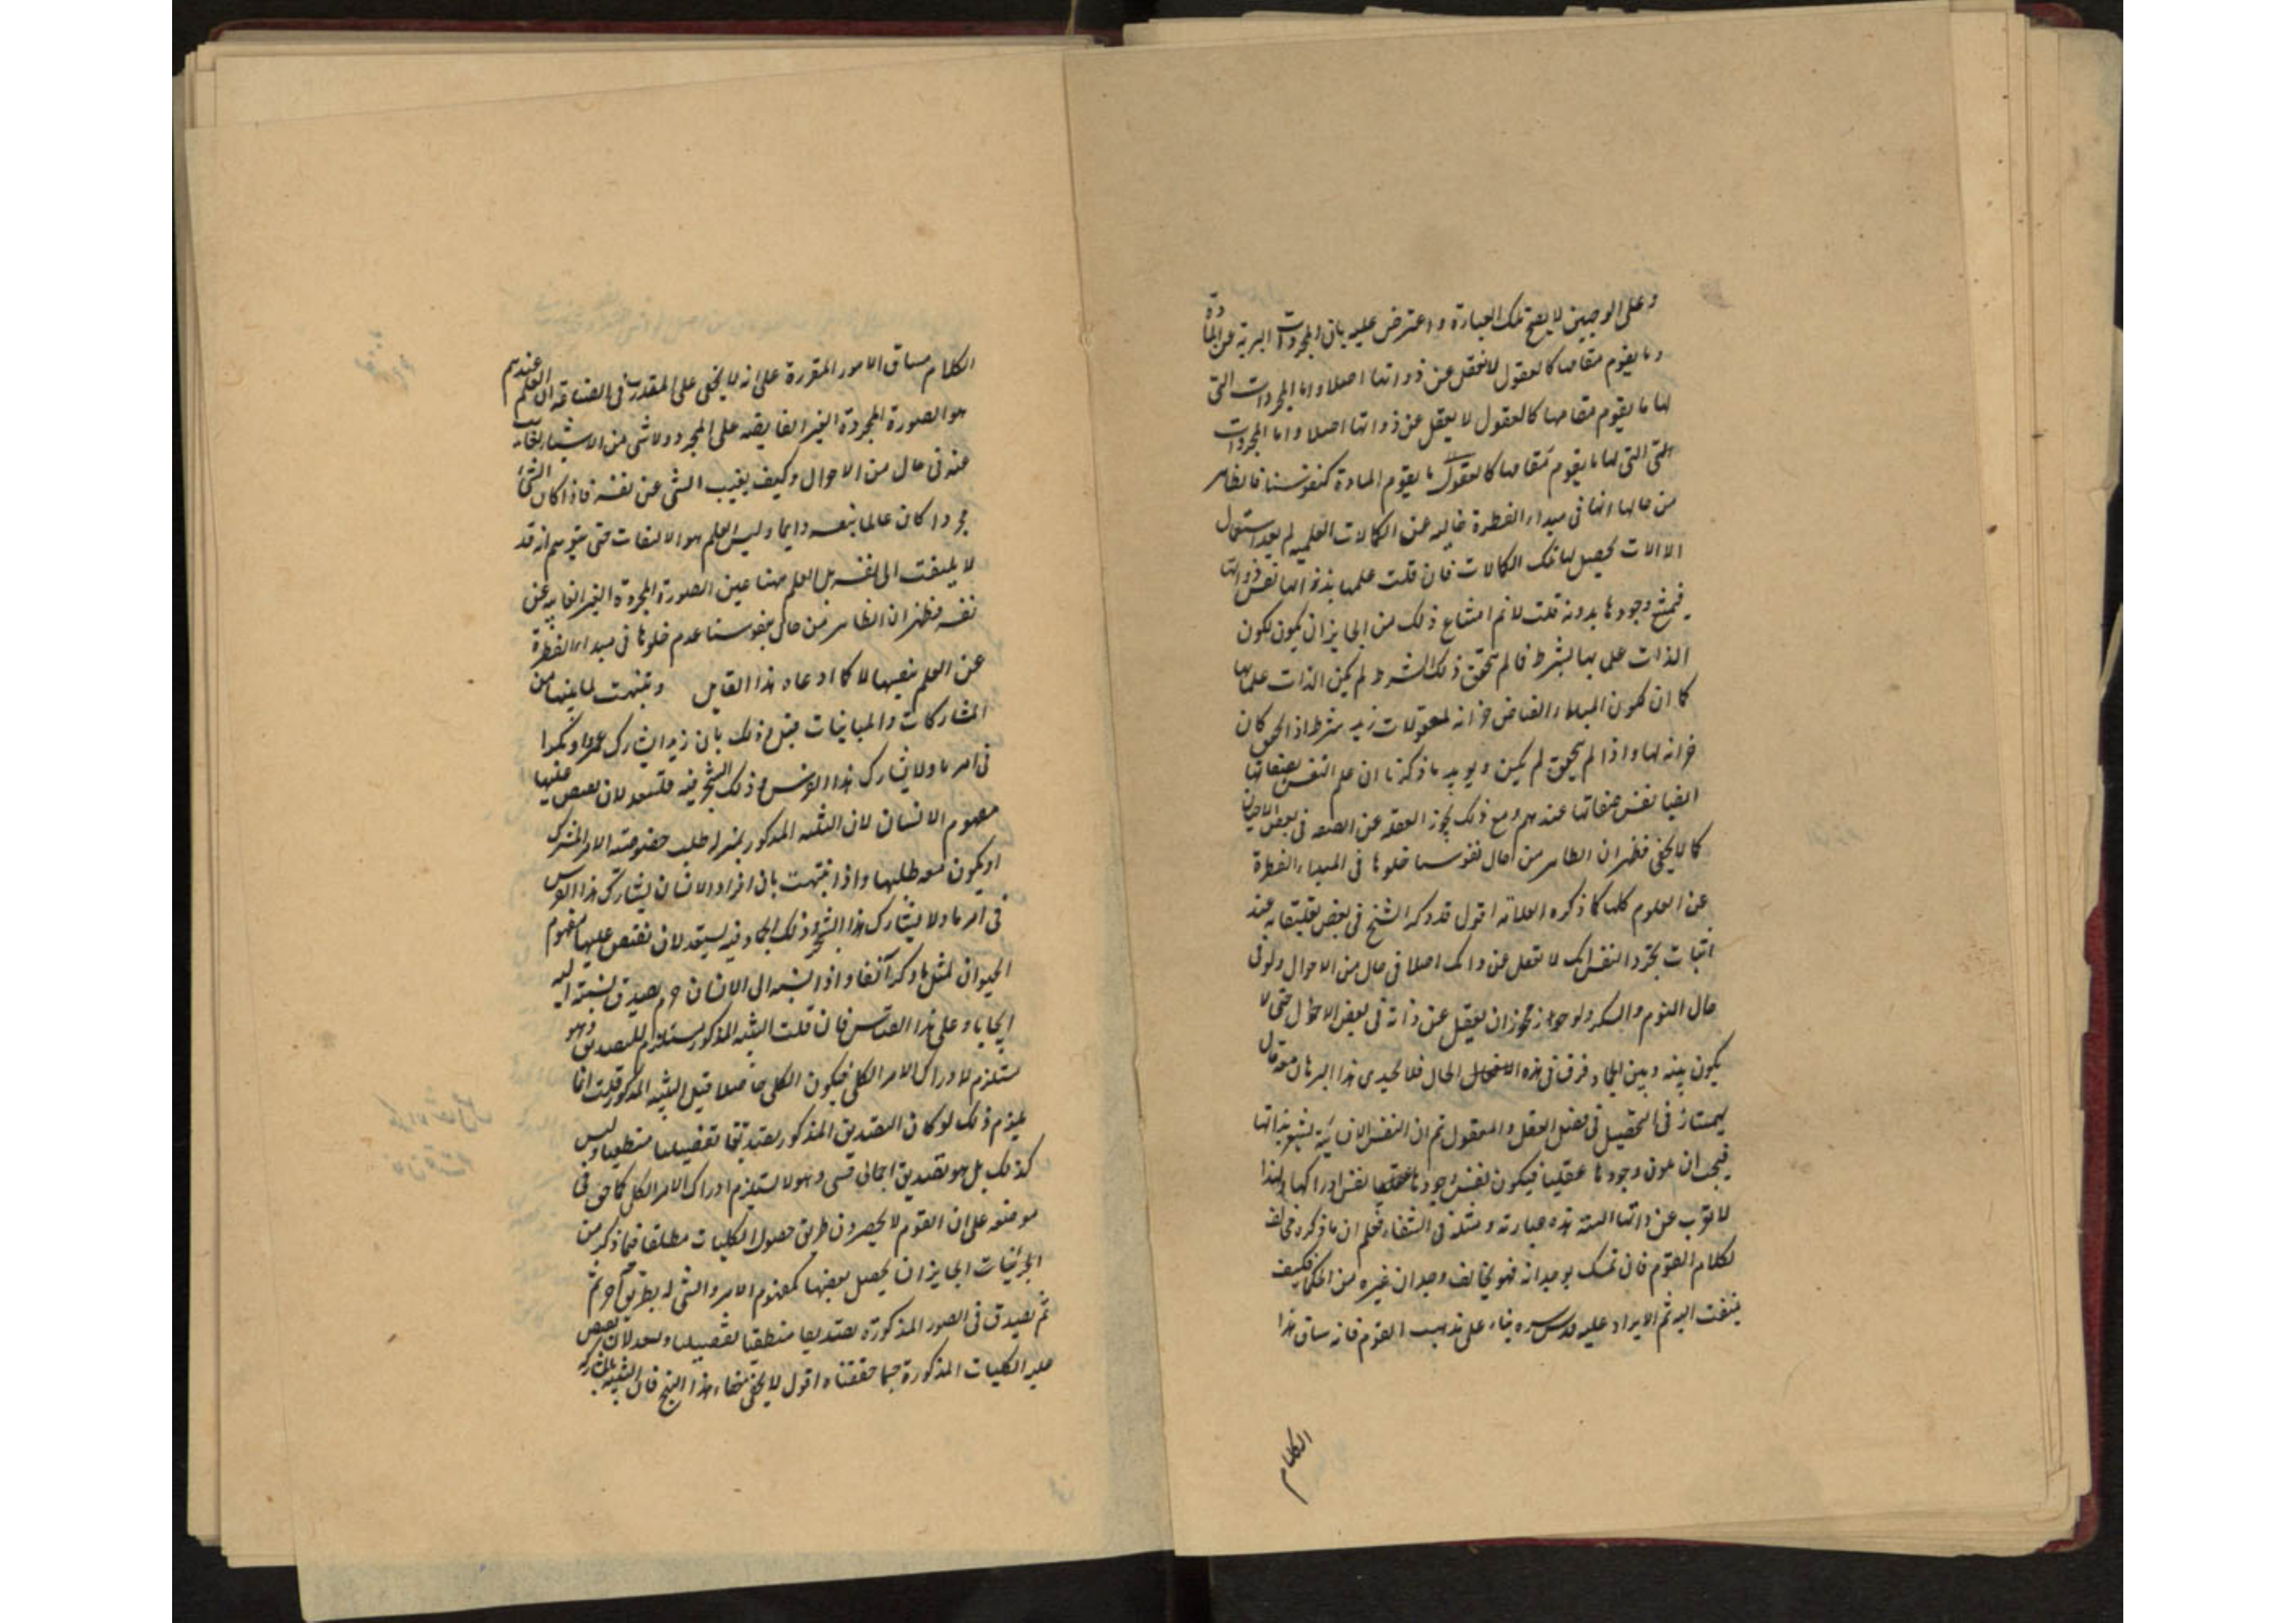 وعلى الوجهين لا يصح تلك العبارة واعترض عليه بان المجردات البرية عن المادة
وما يقوم مقامها كالعقول لا تغفل عن ذواتها اصلا واما المجردات التى
لها ما يقوم مقامها كالعقول لا يغفل عن ذواتها اصلا واما المجردات
التى لها ما يقوم مقامها كالعقول ما يقوم المادة كنفوسنا فالظاهر
من حالها انها فى مبداء الفطرة خالية عن الكمالات العلمية ثم بعد استعمال
الالات يحصل لها تلك الكمالات فان قلت علمها بذواتها نفس ذواتها
فيمتنع وجودها بدونه قلت لانم امتناع ذلك من الجايز ان يكون لكون
الذات علما بها شرط فما لم يتحقق ذلك الشرط لم يكن الذات علما بها
كما ان لكون المبداء الفياض خزانة لمعقولات زيد شرط اذا تحقق كان
خزانة لها واذا لم يتحقق لم يكن ويويد ما ذكرنا ان علم النفس بصفاتها
ايضا نفس صفاتها عندهم ومع ذلك يجوز الغفلة عن الصفة فى بعض الاحيان
كما لا يخفى فظهر ان الظاهر من حال نفوسنا خلوها فى المبداء الفطرة
عن العلوم كلها كما ذكره العلامة اقول قد ذكر الشيخ فى بعض تعليقاته عند
اثبات تجرد النفس انك لا تغفل عن ذاتك اصلا فى حال من الاحوال ولو فى
حال النوم والسكر ولو جوز مجوز ان يغفل عن ذاته فى بعض الاحوال حتى لا
يكون بينه وبين الجماد فرق فى هذه الحال فلا يجدى هذا البرهان معه وقال
بهمنيار فى التحصيل فى فصل العقل والمعقول ثم ان النفس الانسانية تشعر بذاتها
فيجب ان يكون وجودها عقليا فيكون نفس وجودها نفس ادراكها ولهذا
لا تعزب عن ذاتها البتة هذه عبارته ومثله فى الشفاء فعلم ان ما ذكره مخالف
لكلام القوم فان تمسك بوجدانه فهو يخالف وجدان غيره من الحكماء فكيف
يلتفت اليه ثم الايراد عليه قدس سره بناء على مذهب القوم فانه ساق هذا
الكلام
الكلام مساق الامور المقررة على انه لا يخفى على المتدرب فى الصناعة ان العلم عندهم
هو الصورة المجردة الغير الغايبة على المجرد ولا شى من الاشياء بغايب
عنه فى حال من الاحوال وكيف يغيب الشى عن نفسه فاذا كان الشئ
مجردا كان عالما بنفسه دايما وليس العلم هو الالتفات حتى يتوهم انه قد
لا يلتفت الى نفسه بل العلم هنا عين الصورة المجردة الغير الغايبة عن
نفسه فظهر ان الظاهر من حال نفوسنا عدم خلوها فى مبداء الفطرة
عن العلم بنفسها لا كما ادعاه هذا القايل وتنبهت لما بينها من
المشاركات والمباينات قيل وذلك بان زيدا يشارك عمروا وبكرا
فى امر ما ولا يشارك هذا الفرس وذلك الشجر فيه فتستعد لان يفيض عليها
مفهوم الانسان لان التنبه المذكور بمنزلة طلب خصوصية الامر المشترك
او يكون معه طلبها واذا تنبهت بان افراد الانسان يشارك هذا الفرس
فى امر ما ولا يشارك هذا الشجر وذلك الجماد فيه يستعد لان تفيض عليها مفهوم
الحيوان لمثل ما ذكر آنفا واذا نسبه الى الانسان جزم بصدق نسبته اليه
ايجابا وعلى هذا القياس فان قلت التنبه المذكور مستلزم للتصديق وهو
مستلزم لادراك الامر الكلى فيكون الكلى حاصلا قبل التنبه المذكور قلت انما
يلزم ذلك لو كان التصديق المذكور تصديقا تفصيليا منطقيا وليس
كذلك بل هو تصديق اجمالى وهو لا يستلزم ادراك الامر الكلى كما حق فى
موضعه على ان القوم لا يحصرون طريق حصول الكليات مطلقا فيما ذكر من
الجزئيات الجايز ان يحصل بعضها كمفهوم الامر والشى له بطريق آخر ثم
ثم يصدق فى الصور المذكورة تصديقا منطقيا تفصيليا ويستعد لان يفيض
عليه الكليات المذكورة حققناه اقول لا يخفى هذا فان التنبه